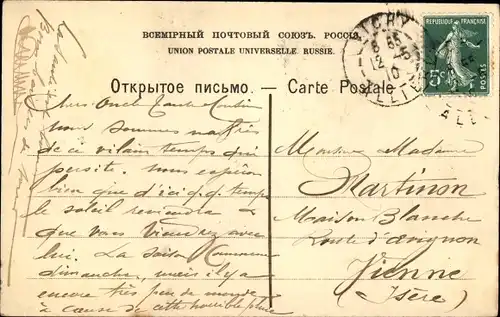 ВСЕМІРНЫЙ ПОЧТОВЫЙ СОЮЗЪ. РОССІЯ.
UNION POSTALE UNIVERSELLE. RUSSIE.
Открытое письмо. — Carte Postale
VICHY
12 -5
10
ALLIER
REPUBLIQUE FRANÇAISE
5c
POSTES
Chers Oncle Tante
nous sommes navrés
de ce vilain temps qui
persite. nous espérons
bien que d'ici q.q. temps
le soleil reviendra
que vous viendrez avec
lui. La saison commence
dimanche, mais il y a
encore très peu de monde
à cause de cette horrible pluie
Monsieur Madame
Martinon
Maison Blanche
Route d'avignon
Vienne
(Isère)